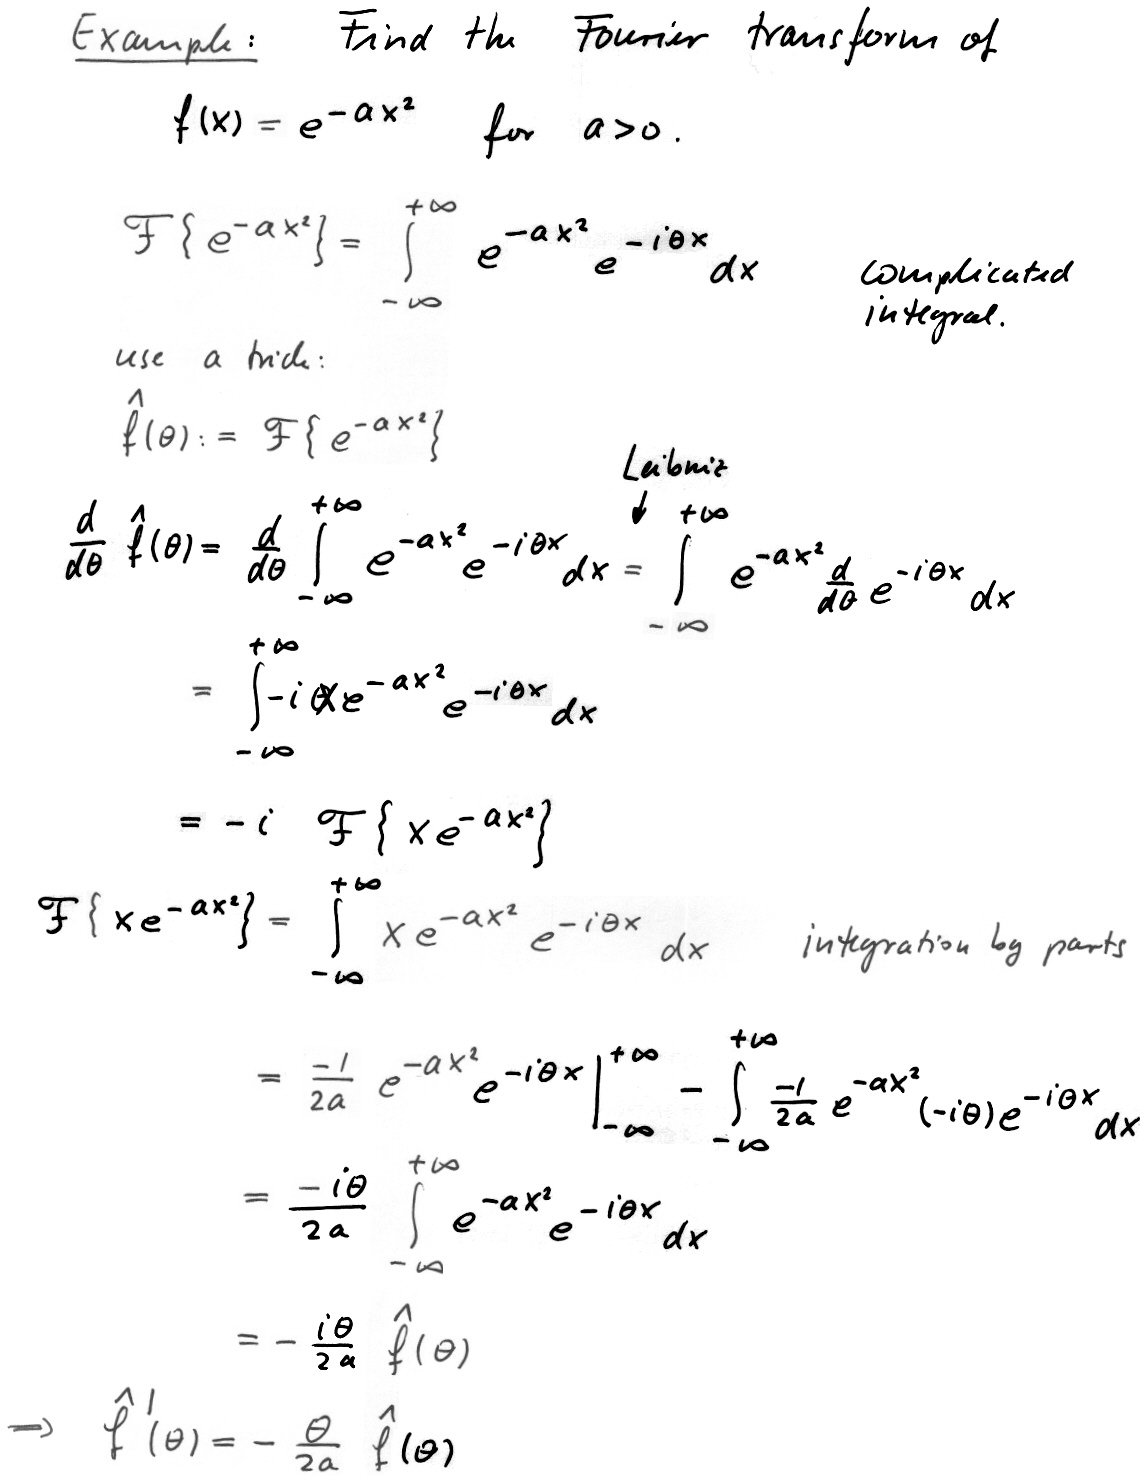 Example: Find the Fourier transform of
f(x) = e^{-ax²} for a>0.
ℱ{e^{-ax²}} = ∫_{-∞}^{+∞} e^{-ax²} e^{-iθx} dx complicated integral.
use a trick:
f̂(θ) := ℱ{e^{-ax²}}
Leibniz ↓
d/dθ f̂(θ) = d/dθ ∫_{-∞}^{+∞} e^{-ax²} e^{-iθx} dx = ∫_{-∞}^{+∞} e^{-ax²} d/dθ e^{-iθx} dx
= ∫_{-∞}^{+∞} -i x e^{-ax²} e^{-iθx} dx
= -i ℱ{x e^{-ax²}}
ℱ{x e^{-ax²}} = ∫_{-∞}^{+∞} x e^{-ax²} e^{-iθx} dx integration by parts
= -1/2a e^{-ax²} e^{-iθx} |_{-∞}^{+∞} - ∫_{-∞}^{+∞} -1/2a e^{-ax²} (-iθ) e^{-iθx} dx
= -iθ/2a ∫_{-∞}^{+∞} e^{-ax²} e^{-iθx} dx
= - iθ/2a f̂(θ)
⇒ f̂'(θ) = - θ/2a f̂(θ)